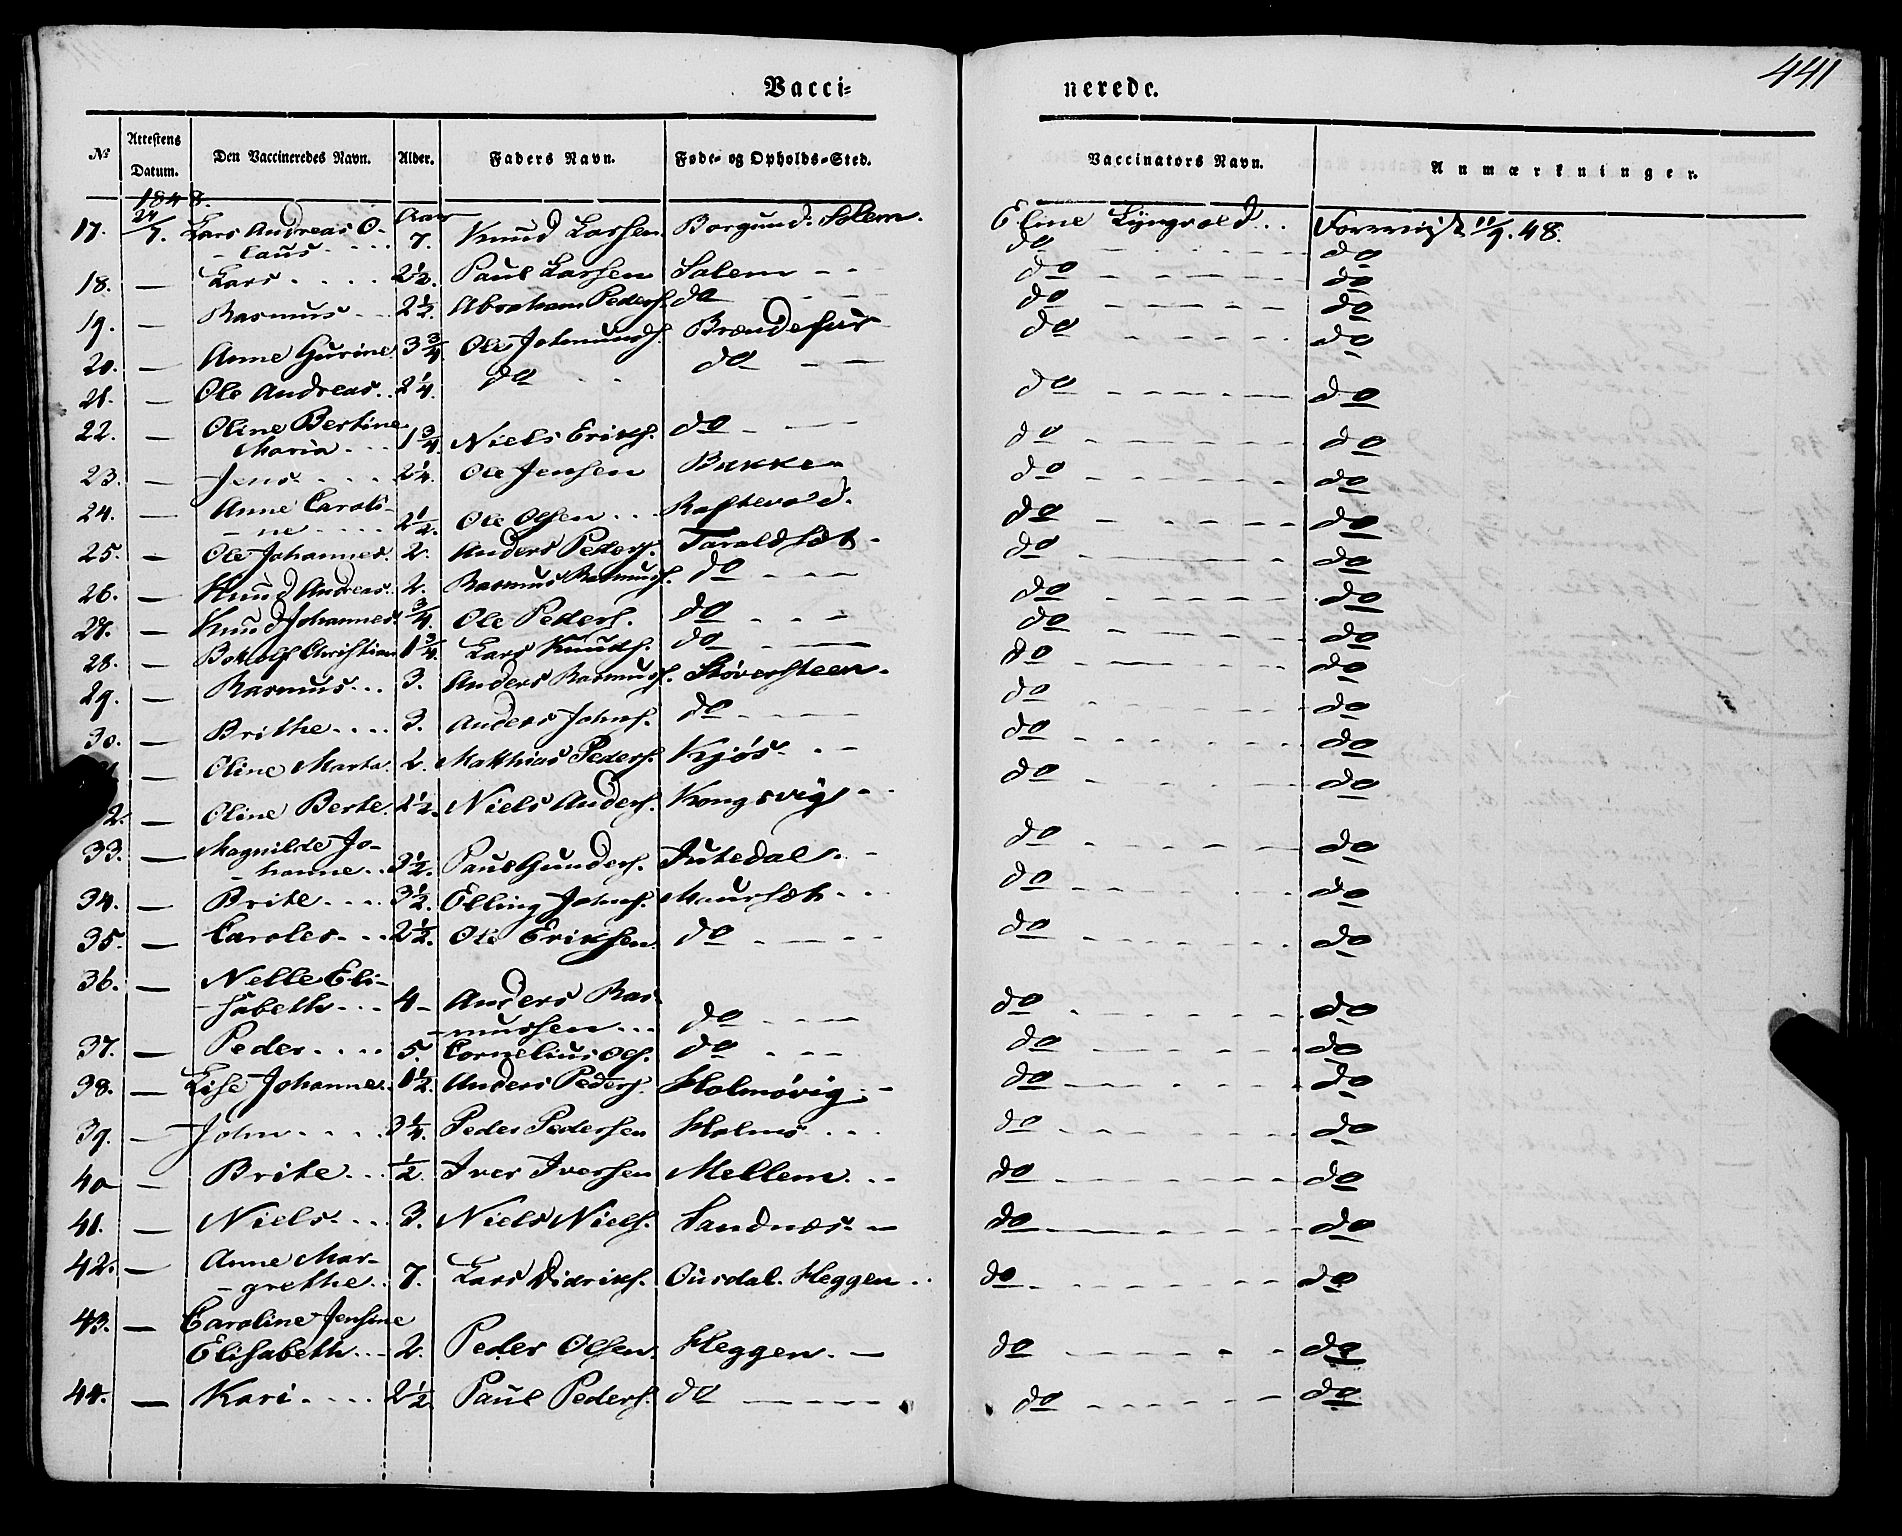 441
Vacci= nerede.
No Attestens Datum. Den Vaccineredes Navn. Alder. Faders Navn. Føde- og Opholds-Sted. Vaccinators Navn. Anmærkninger.
1848. Aar
17. 24/7. Lars Andreas O- 7. Knud Larsen. Borgund. Solem. Eline Lyngvold... Forevist 11/9. 48.
- laus - - - - do - - - do
18. — Lars . . . . 2½. Paul Larsen Solem - - - do - - - do
19. — Rasmus - - 2½. Abraham Peders. do - - - do - - - do
20. — Anne Gurine 3¾ Ole Johnunds. Brændehuus do - - - do
21. — Ole Andreas.. 2¼. do - - do - - do - - - do
22. — Oline Bertine
Maria - - - 1¾ Niels Eriks. do - - - do - - - do
23. — Jens . . . . 2¼. Ole Jensen Bakke - do - - - do
24. — Anne Caroli-
- ne - - - - 2½. Ole Olsen... Raftevold. do - - - do
25. — Ole Johannes. 2. Anders Peders. Taraldset - do - - - do
26. — Knud Andreas. 2. Rasmus Rasmuss. do - - - do - - - do
27. — Knud Johannes ¾. Ole Peders. do - - - do - - - do
28. — Botholf Christian 1¾. Lars Knuds. do - - - do - - - do
29. — Rasmus... 3. Anders Rasmuss. Støversteen. do - - - do
30. — Brithe.... 3. Anders Johns. do - - - do - - - do
— Oline Marta. 2. Matthias Peders. Kjøs - - - do - - - do
2. — Oline Berte. 2½. Niels Anders. Kongsvig - - do - - - do
33. — Magnilde Jo-
- hanne.. 3½. Paul Gunders. Jutedal. - - do - - - do
34. — Brite.... 3½. Elling Johns. Maurset - - - do - - - do
35. — Caroles - - - 2½. Ole Eriksen. do - - - do - - - do
36. — Nelle Eli-
- sabeth... 4 - Anders Ras-
- mussen... do - - - do - - - do
37. — Peder.... 5. Cornelius Ols. do - - - do - - - do
38. — Lise Johanne. 1½. Anders Peders. Holmøvig. - do - - - do
39. — John.... 3¼. Peder Pedersen Holmø... do - - - do
40 — Brite... ½. Iver Iversen Mellem... do - - - do
41. — Niels.... 3. Niels Niels. Sandnæs. — do - - - do
42. — Anne Mar-
- grethe.. 7. Lars Didriks. Ousdal. Heggen.. do - - - do
43. — Caroline Jensine
Elisabeth... 2. Peder Olsen. Heggen. — do - - - do
44. — Kari.... 2½. Paul Peders. do - - - do - - - do